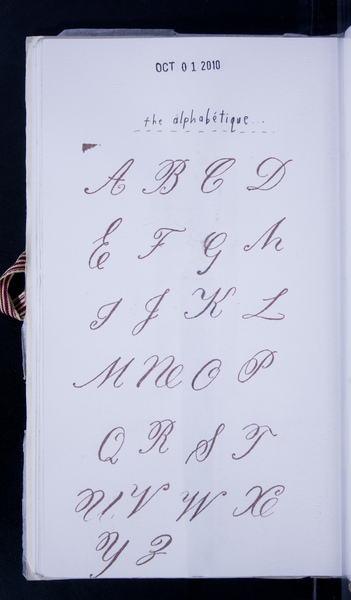 OCT 01 2010
the alphabétique...
A B C D
E F G H
I J K L
M N O P
Q R S T
U V W X
Y Z